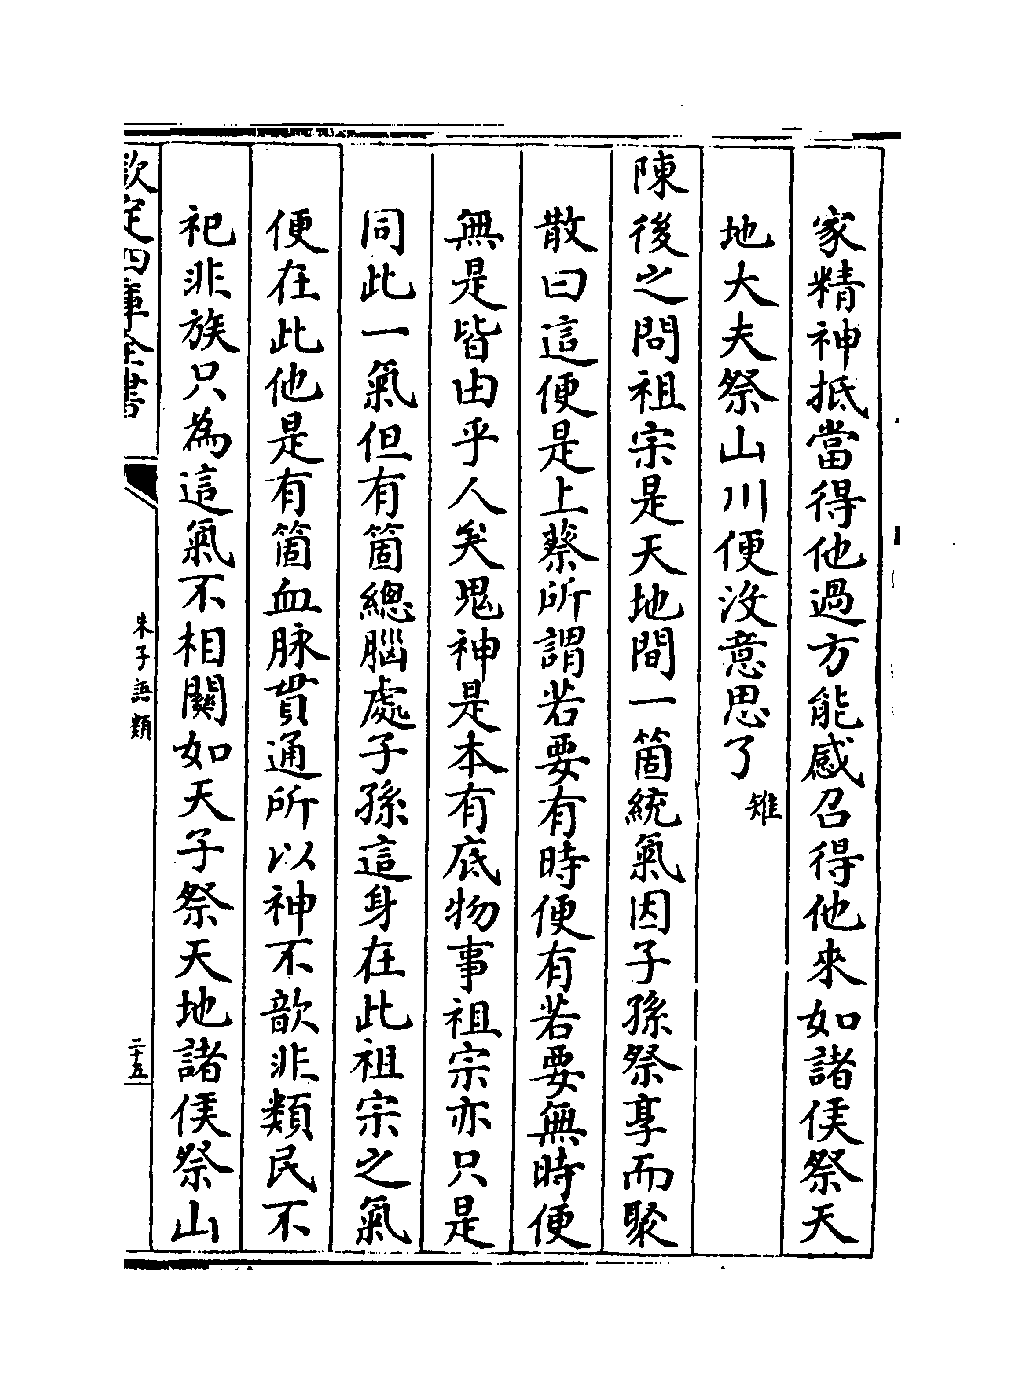 家精神抵當得他過方能感召得他來如諸侯祭天
地大夫祭山川便沒意思了 雉
陳後之問祖宗是天地間一箇統氣因子孫祭享而聚
散曰這便是上蔡所謂若要有時便有若要無時便
無是皆由乎人矣鬼神是本有底物事祖宗亦只是
同此一氣但有箇總腦處子孫這身在此祖宗之氣
便在此他是有箇血脉貫通所以神不歆非類民不
祀非族只為這氣不相關如天子祭天地諸侯祭山
欽定四庫全書
朱子語類
二十五